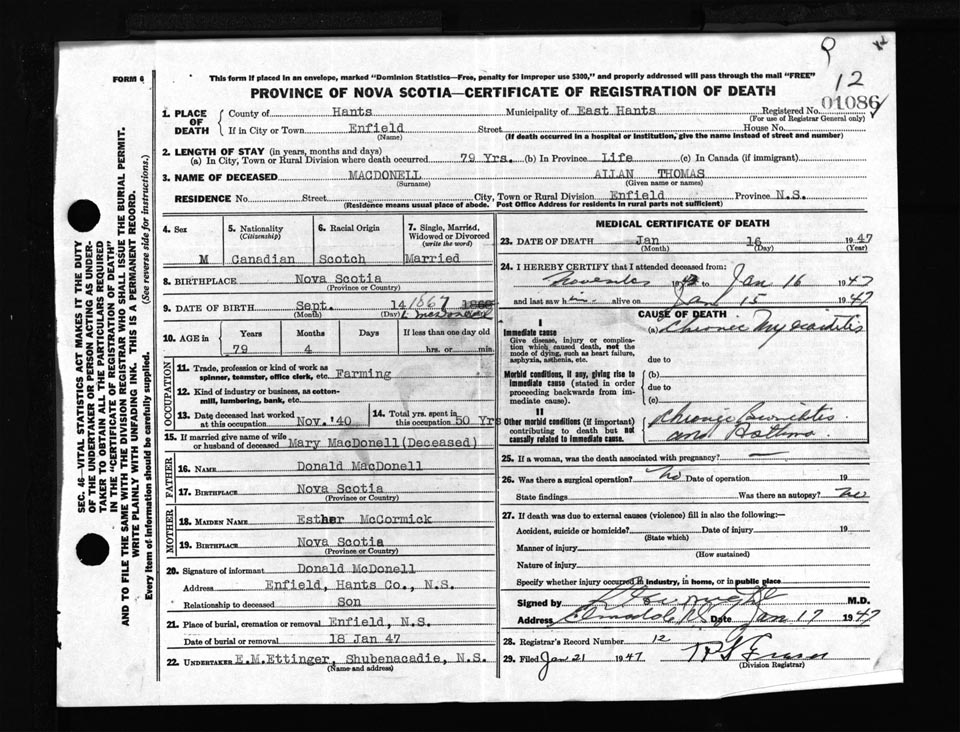 12
FORM 6
This form if placed in an envelope, marked "Dominion Statistics—Free, penalty for improper use $300," and properly addressed will pass through the mail "FREE"
PROVINCE OF NOVA SCOTIA—CERTIFICATE OF REGISTRATION OF DEATH
SEC. 46—VITAL STATISTICS ACT MAKES IT THE DUTY
OF THE UNDERTAKER OR PERSON ACTING AS UNDER-
TAKER TO OBTAIN ALL THE PARTICULARS REQUIRED
IN THE "CERTIFICATE OF REGISTRATION OF DEATH"
AND TO FILE THE SAME WITH THE DIVISION REGISTRAR WHO SHALL ISSUE THE BURIAL PERMIT.
WRITE PLAINLY WITH UNFADING INK. THIS IS A PERMANENT RECORD.
Every item of information should be carefully supplied. (See reverse side for instructions.)
1. PLACE OF DEATH County of Hants Municipality of East Hants Registered No. 01086
(For use of Registrar General only)
If in City or Town Enfield Street House No.
(Name) (If death occurred in a hospital or institution, give the name instead of street and number)
2. LENGTH OF STAY (in years, months and days)
(a) In City, Town or Rural Division where death occurred 79 Yrs. (b) In Province Life (c) In Canada (if immigrant)
3. NAME OF DECEASED MACDONELL ALLAN THOMAS
(Surname) (Given name or names)
RESIDENCE No. Street City, Town or Rural Division Enfield Province N.S.
(Residence means usual place of abode. Post Office Address for residents in rural parts not sufficient)
4. Sex 5. Nationality (Citizenship) 6. Racial Origin 7. Single, Married, Widowed or Divorced (write the word)
M Canadian Scotch Married
8. BIRTHPLACE Nova Scotia
(Province or Country)
9. DATE OF BIRTH Sept. 14 1867
(Month) (Day)
10. AGE in Years Months Days If less than one day old
79 4 hrs. or min.
OCCUPATION
11. Trade, profession or kind of work as spinner, teamster, office clerk, etc. Farming
12. Kind of industry or business, as cotton-mill, lumbering, bank, etc.
13. Date deceased last worked at this occupation Nov. '40 14. Total yrs. spent in this occupation 50 Yrs
15. If married give name of wife or husband of deceased Mary MacDonell (Deceased)
FATHER
16. NAME Donald MacDonell
17. BIRTHPLACE Nova Scotia
(Province or Country)
MOTHER
18. MAIDEN NAME Esther McCormick
19. BIRTHPLACE Nova Scotia
(Province or Country)
20. Signature of informant Donald McDonell
Address Enfield, Hants Co., N.S.
Relationship to deceased Son
21. Place of burial, cremation or removal Enfield, N.S.
Date of burial or removal 18 Jan 47
22. UNDERTAKER E.M.Ettinger, Shubenacadie, N.S.
(Name and address)
MEDICAL CERTIFICATE OF DEATH
23. DATE OF DEATH Jan 16 1947
(Month) (Day) (Year)
24. I HEREBY CERTIFY that I attended deceased from:
November 19 to Jan 16 1947
and last saw him alive on Jan 15 1947
CAUSE OF DEATH
I
Immediate cause (a) Chronic Myocarditis
Give disease, injury or complication which caused death, not the mode of dying, such as heart failure, asphyxia, asthenia, etc.
due to
Morbid conditions, if any, giving rise to immediate cause (stated in order proceeding backwards from immediate). (b)
due to
(c)
II
Other morbid conditions (if important) contributing to death but not causally related to immediate cause. Chronic Bronchitis
and Asthma
25. If a woman, was the death associated with pregnancy? —
26. Was there a surgical operation? No Date of operation 19
State findings Was there an autopsy? No
27. If death was due to external causes (violence) fill in also the following:—
Accident, suicide or homicide? Date of injury 19
(State which)
Manner of injury
(How sustained)
Nature of injury
Specify whether injury occurred in industry, in home, or in public place
Signed by M.D.
Address Elmsdale N.S. Date Jan 17 1947
28. Registrar's Record Number 12
29. Filed Jan 21 1947
(Division Registrar)